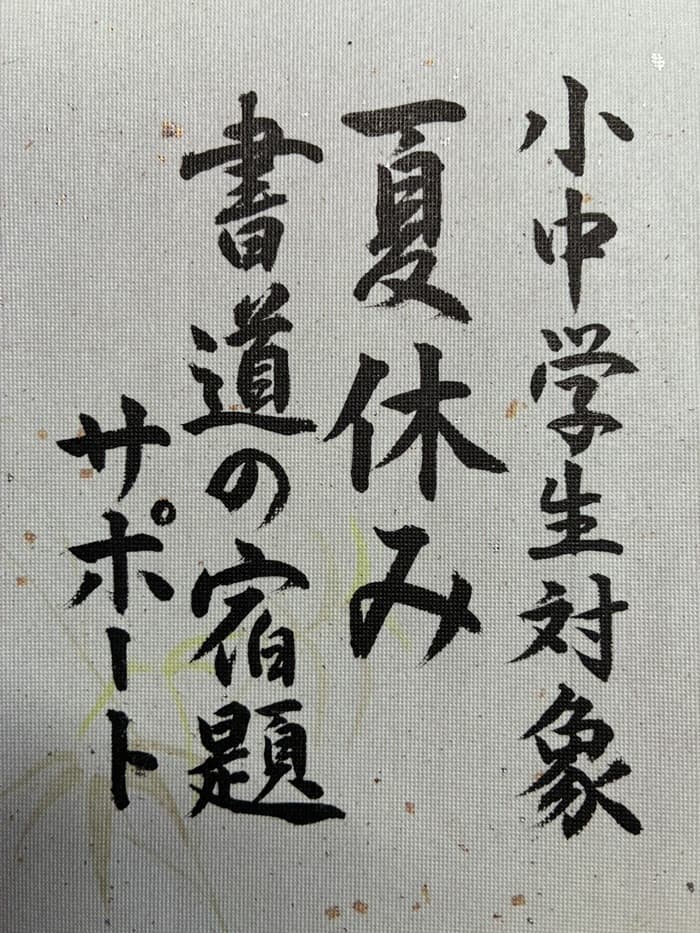 小中学生対象
夏休み
書道の宿題
サポート